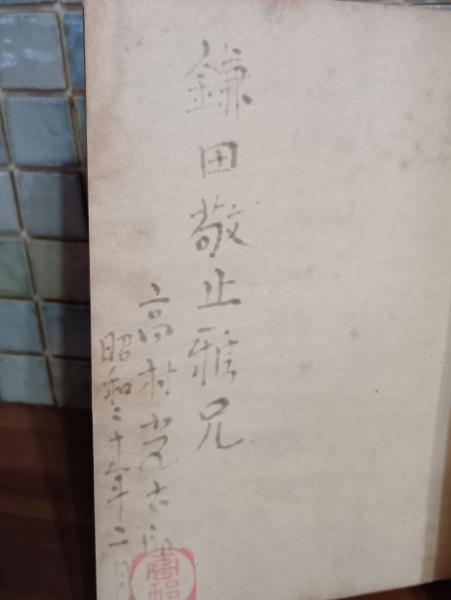 鎌田敬止雅兄
高村光太郎
昭和二十年二月